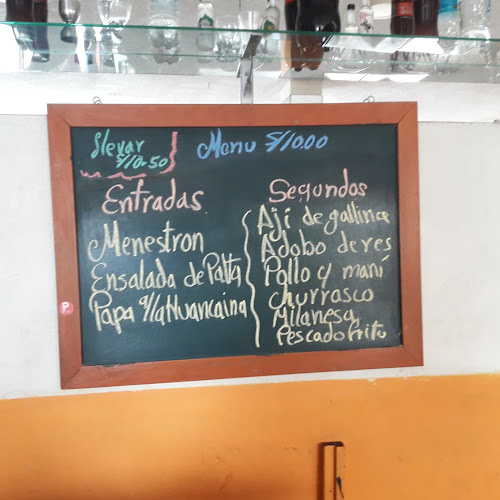 llevar
S/10.50
Menu S/10.00
Entradas
Menestron
Ensalada de Palta
Papa a/la Huancaina
Segundos
Aji de gallina
Adobo de res
Pollo y maní
churrasco
Milanesa
Pescado frito
P